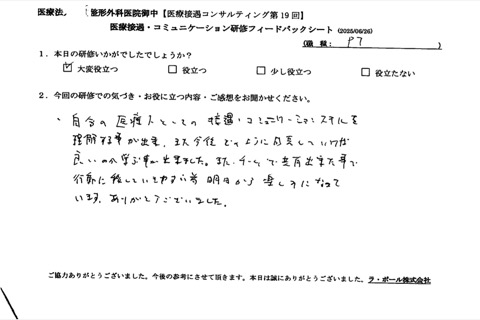 医療法 整形外科医院御中【医療接遇コンサルティング第19回】
医療接遇・コミュニケーション研修フィードバックシート (2025/06/26)
(職 種: PT )
1．本日の研修いかがでしたでしょうか？
☑ 大変役立つ □ 役立つ □ 少し役立つ □ 役立たない
2．今回の研修での気づき・お役に立つ内容・ご感想をお聞かせください。
・自分の医療人としての接遇・コミュニケーションスキルを
理解する事が出来、また今後どのように成長していけば
良いのか学ぶ事が出来ました。また、チームで共有出来た事で
行動に移していとか 明日から楽しみになって
います。ありがとうございました。
ご協力ありがとうございました。今後の参考にさせて頂きます。本日は誠にありがとうございました。ラ・ポール株式会社